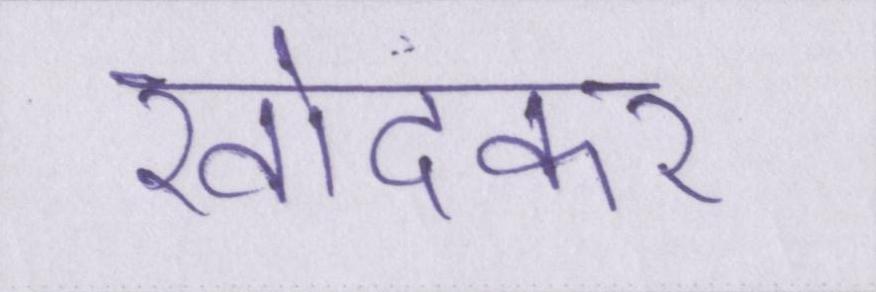 खोदंकर